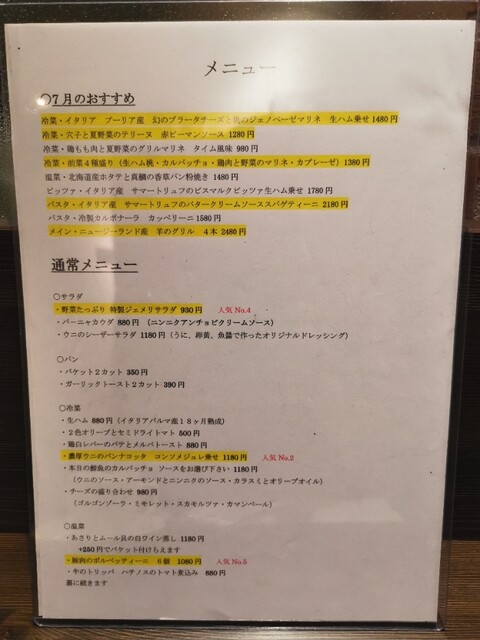 メニュー
○7月のおすすめ
冷菜・イタリア プーリア産 幻のブラータチーズと桃のジェノベーゼマリネ 生ハム乗せ 1480円
冷菜・穴子と夏野菜のテリーヌ 赤ピーマンソース 1280円
冷菜・鶏もも肉と夏野菜のグリルマリネ タイム風味 980円
冷菜・前菜4種盛り（生ハム桃・カルパッチョ・鶏肉と野菜のマリネ・カプレーゼ）1380円
温菜・北海道産ホタテと真鯛の香草パン粉焼き 1480円
ピッツァ・イタリア産 サマートリュフのビスマルクピッツァ生ハム乗せ 1780円
パスタ・イタリア産 サマートリュフのバタークリームソーススパゲティーニ 2180円
パスタ・冷製カルボナーラ カッペリーニ 1580円
メイン・ニュージーランド産 羊のグリル 4本 2480円
通常メニュー
○サラダ
・野菜たっぷり 特製ジェメリサラダ 930円 人気 No.4
・バーニャカウダ 880円 （ニンニクアンチョビクリームソース）
・ウニのシーザーサラダ 1180円（うに、卵黄、魚醤で作ったオリジナルドレッシング）
○パン
・バケット2カット 350円
・ガーリックトースト2カット 390円
○冷菜
・生ハム 880円（イタリアパルマ産18ヶ月熟成）
・2色オリーブとセミドライトマト 500円
・鶏白レバーのパテとメルバトースト 880円
・濃厚ウニのパンナコッタ コンソメジュレ乗せ 1180円 人気 No.2
・本日の鮮魚のカルパッチョ ソースをお選び下さい 1180円
（ウニのソース・アーモンドとニンニクのソース・カラスミとオリーブオイル）
・チーズの盛り合わせ 980円
（ゴルゴンゾーラ・ミモレット・スカモルツァ・カマンベール）
○温菜
・あさりとムール貝の白ワイン蒸し 1180円
+250円でバケット付けらえます
・豚肉のポルペッティーニ 6個 1080円 人気 No.5
・牛のトリッパ ハチノスのトマト煮込み 880円
裏に続きます